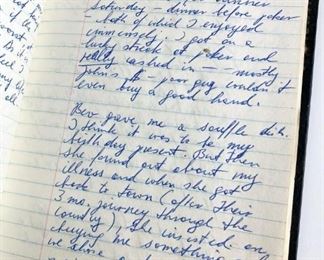 dinner
Saturday - dinner before poker
- both of which I enjoyed
immensely. I got on a
lucky streak at poker and
really cashed in - mostly
John's $ - poor guy couldn't
even buy a good hand.
Bev gave me a souffle dish.
I think it was to be my
birthday present. But then
she found out about my
illness and when she got
back to town (after their
3 mo. journey through the
country), she insisted on
buying me something